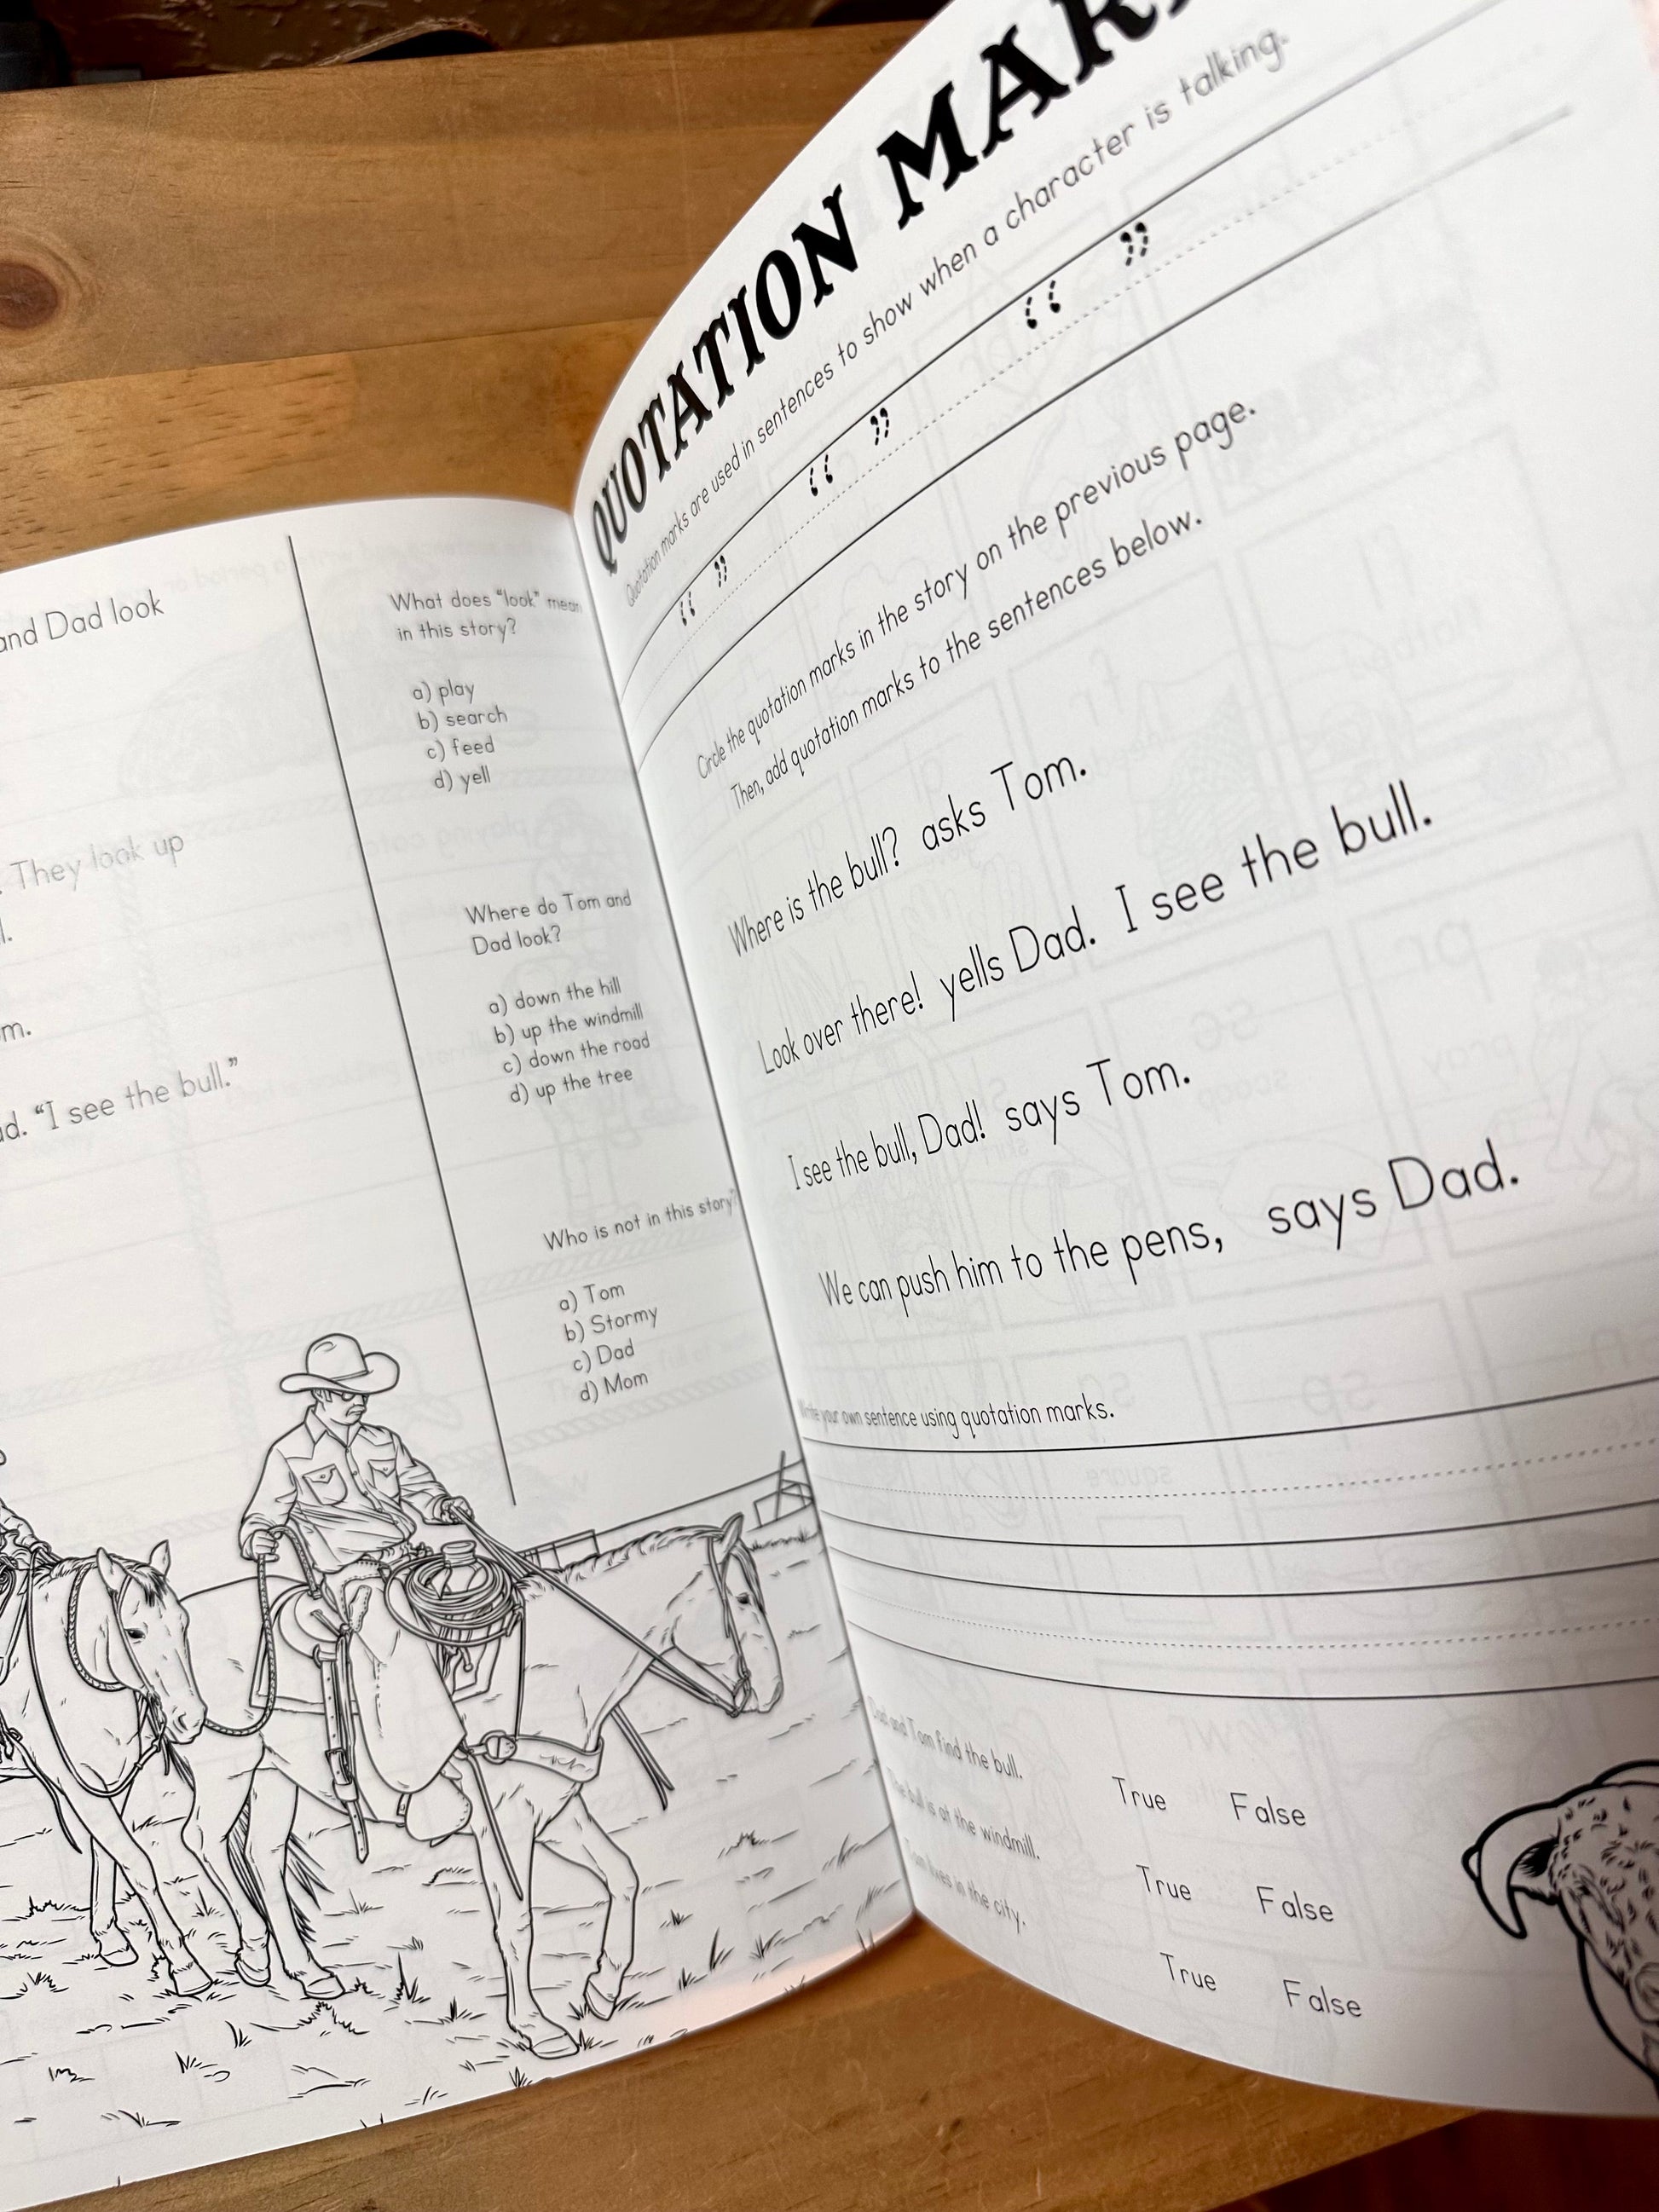 and Dad look
They look up
"I see the bull."
What does "look" mean
in this story?
a) play
b) search
c) feed
d) yell
Where do Tom and
Dad look?
a) down the hill
b) up the windmill
c) down the road
d) up the tree
Who is not in this story?
a) Tom
b) Stormy
c) Dad
d) Mom
QUOTATION
Quotation marks are used in sentences to show when a character is talking.
“ ” “ ” “ ”
Circle the quotation marks in the story on the previous page.
Then, add quotation marks to the sentences below.
Where is the bull? asks Tom.
Look over there! yells Dad. I see the bull.
I see the bull, Dad! says Tom.
We can push him to the pens, says Dad.
Write your own sentence using quotation marks.
Dad and Tom find the bull. True False
The bull is at the windmill. True False
Tom lives in the city. True False